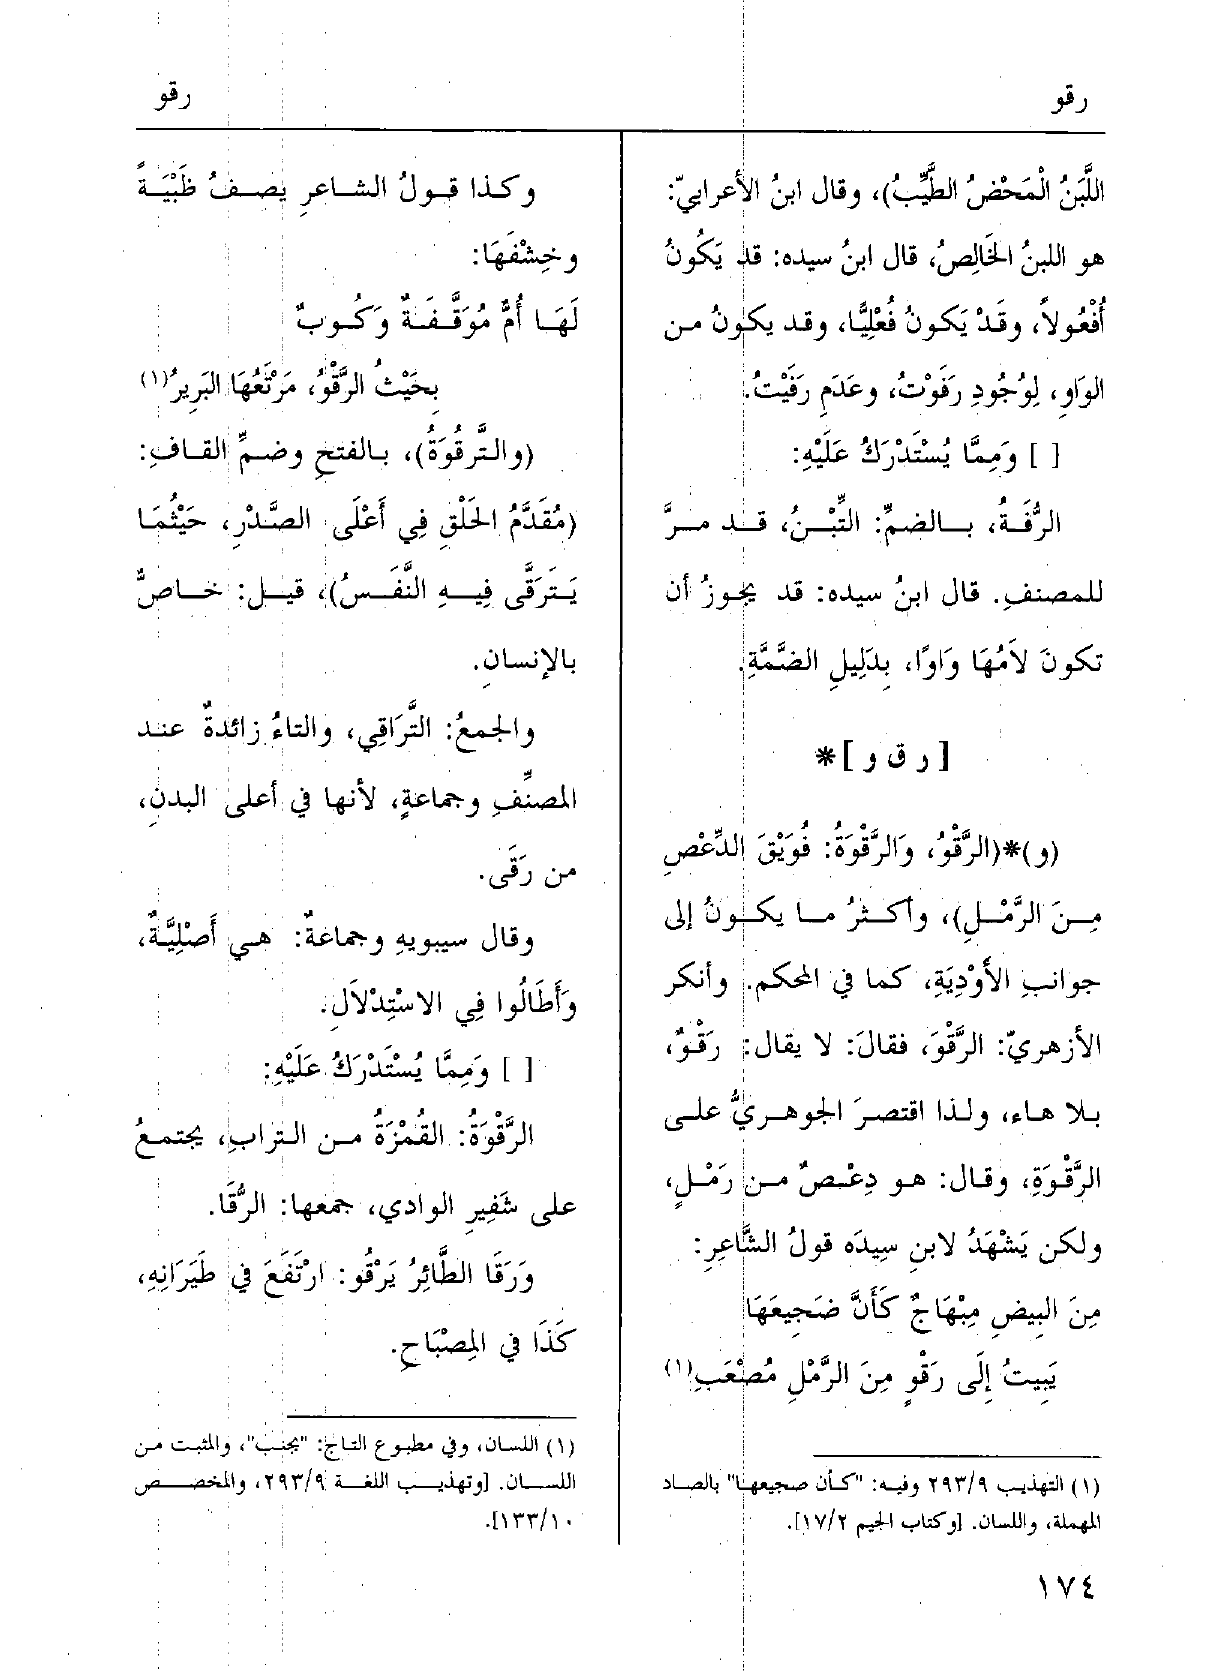 رقو
رقو
اللَّبَنُ الْمَحْضُ الطَّيِّبُ)، وقال ابنُ الأعرابيّ:
هو اللبنُ الخَالِصُ، قال ابنُ سيده: قد يَكُونُ
أُفْعُولاً، وقَدْ يَكونُ فُعْلِيًّا، وقد يكونُ من
الوَاوِ، لِوُجُودِ رَفَوْتُ، وعَدَمِ رَفَيْتُ.
[ ] وَمِمَّا يُسْتَدْرَكُ عَلَيْهِ:
الرُّفَـةُ، بـالضمِّ: التِّبْـنُ، قـد مـرَّ
للمصنفِ. قال ابنُ سيده: قد يجوزُ أن
تكونَ لاَمُهَا وَاوًا، بِدَلِيلِ الضَّمَّةِ.
[ ر ق و ]*
(و)*(الرَّقْوُ، وَالرَّقْوَةُ: فُوَيْقَ الدِّعْصِ
مِـنَ الرَّمْـلِ)، وأكـثرُ مـا يكـونُ إلى
جوانبِ الأَوْدِيَةِ، كما في المحكم. وأنكر
الأزهريّ: الرَّقْوَ، فقالَ: لا يقال: رَقْوٌ،
بـلا هـاء، ولـذا اقتصرَ الجوهـريُّ علـى
الرَّقْوَةِ، وقال: هـو دِعْـصٌ مـن رَمْـلٍ،
ولكن يَشْهَدُ لابنِ سِيدَه قولُ الشَّاعِرِ:
مِنَ البِيضِ مِبْهَاجٌ كَأَنَّ ضَجِيعَهَا
يَبِيتُ إِلَى رَقْوٍ مِنَ الرَّمْلِ مُصْعَبِ(١)
(١) التهذيب ٢٩٣/٩ وفيه: "كأن صجيعها" بالصاد
المهملة، واللسان. [وكتاب الجيم ١٧/٢].
وكـذا قـولُ الشـاعرِ يصـفُ ظَبْيَـةً
وخِشْفَهَا:
لَهَـا أُمٌّ مُوَقَّـفَـةٌ وَكُـوبٌ
بِحَيْثُ الرَّقْوُ، مَرْتَعُهَا البَرِيرُ(١)
(والتَّرقُوَةُ)، بـالفتحِ وضـمِّ القـافِ:
(مُقَدَّمُ الحَلْقِ فِي أَعْلَى الصَّدْرِ، حَيْثُمَا
يَـتَرَقَّى فِيـهِ النَّفَـسُ)، قيـل: خـاصٌّ
بالإنسانِ.
والجمعُ: التَّرَاقِي، والتاءُ زائدةٌ عنـد
المصنِّفِ وجماعةٍ، لأنها في أعلى البدنِ،
من رَقَى.
وقال سيبويهِ وجماعةٌ: هـي أَصْلِيَّةٌ،
وَأَطَالُوا فِي الاسْتِدْلاَلِ.
[ ] وَمِمَّا يُسْتَدْرَكُ عَلَيْهِ:
الرَّقْوَةُ: القُمْزَةُ مـن التـرابِ، يجتمـعُ
على شَفِيرِ الوادي، جمعها: الرُّقَا.
وَرَقَا الطَّائِرُ يَرْقُو: ارْتَفَعَ في طَيَرَانِهِ،
كَذَا في المِصْبَاحِ.
(١) اللسان، وفي مطبوع التاج: "بجنب"، والمثبت من
اللسـان. [وتهذيـب اللغـة ٢٩٣/٩، والمخصـص
١٣٣/١٠].
١٧٤